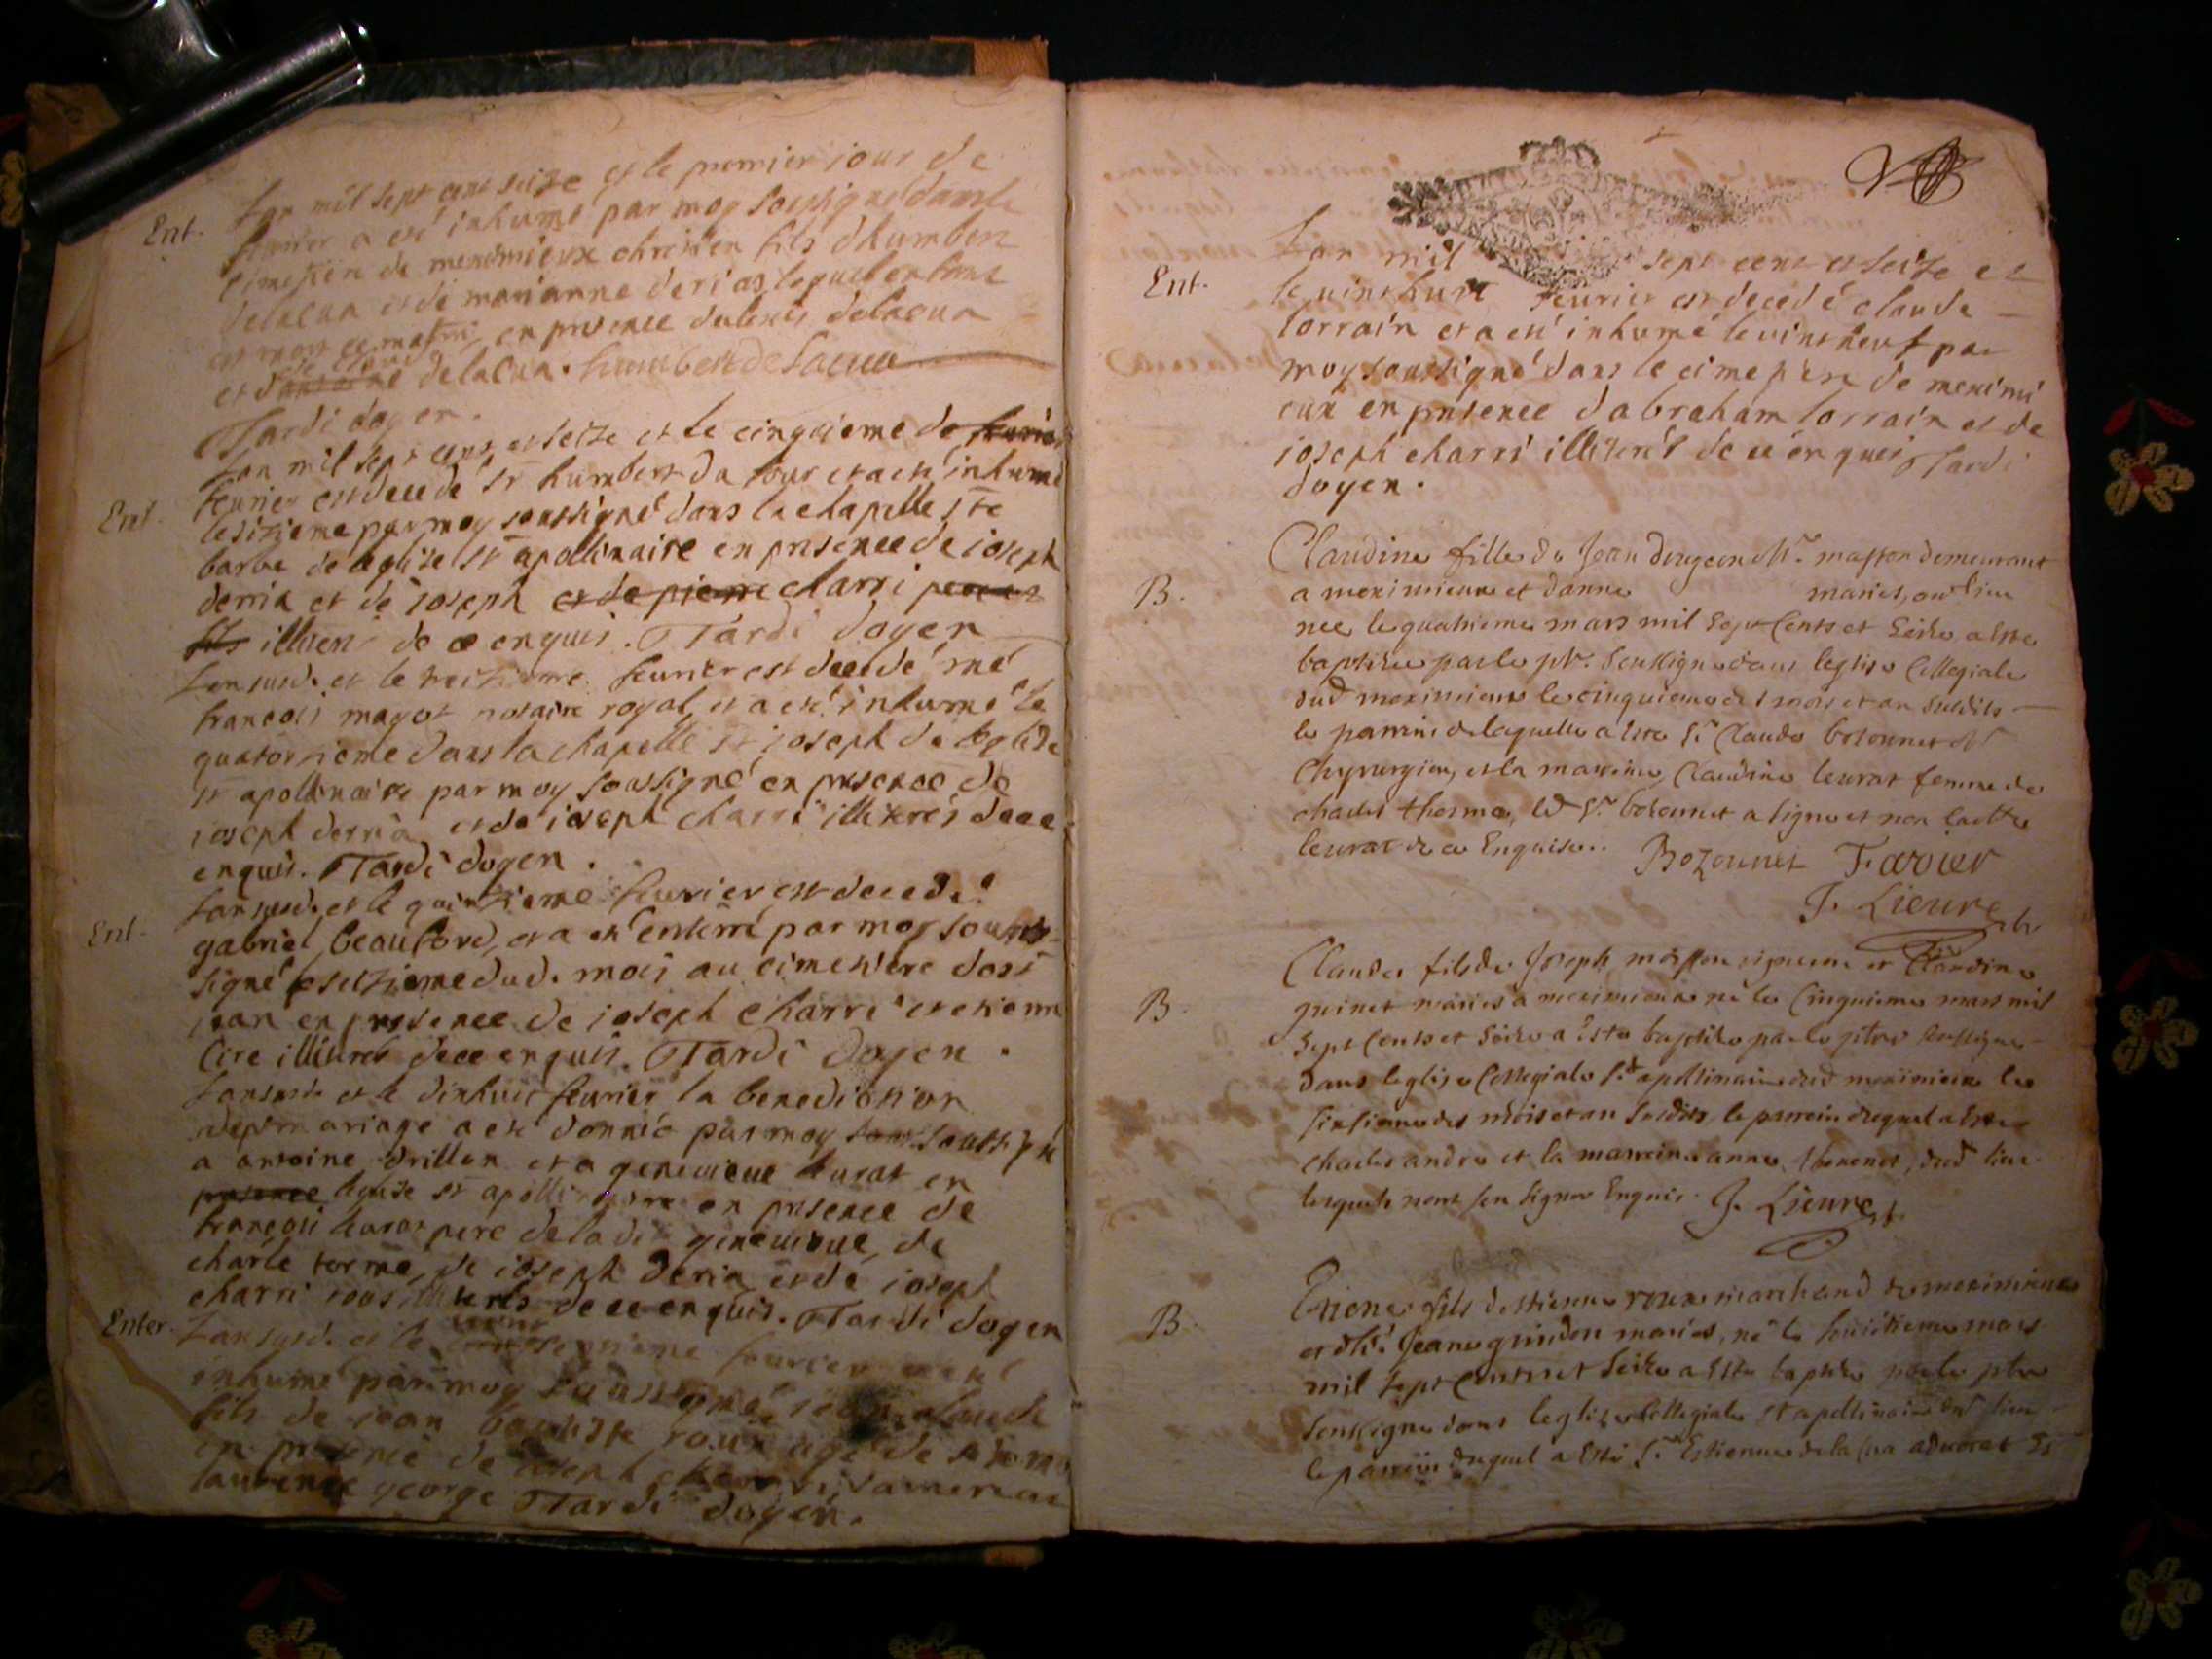 Ent.
Lan mil sept cent seize et le premier iour de
feurier a esté inhumé par moy soussigné dans le
cimetiere de meximieux chretien fils dhumbert
delacua et de marianne derias lequel enfant
est mort ce matin en presence
et de delacua. humbert de lacua
Tardi doyen.
Ent.
Lan mil sept cent et seize et le cinquieme de feurier
feurier est decede sr humbert du four et a esté inhumé
le sizieme par moy soussigné dans la chapelle ste
barbe de leglise st apollinaire en presence de ioseph
derria et de ioseph et de pierre charri
fils illiteré de ce enquis. Tardi doyen
Lan susd. et le treizieme feurier est decedé me
francois magot notaire royal et a esté inhumé le
quatorzieme dans la chapelle st ioseph de leglise
st apollinaire par moy soussigné en presence de
ioseph derria et de ioseph charri illiterés de ce
enquis. Tardi doyen.
Ent.
Lan susd. et le quinzieme feurier est decedé
gabriel beauford, et a esté enterré par moy sous
signé le seizieme dud. mois au cimetiere
ian en presence de ioseph charri et etienne
Cire illiterés de ce enquis. Tardi doyen.
Lan susd. et le dixhuit feurier la benediction
de mariage a esté donnée par moy soussigné
a antoine drillon et a geneuieue leurat en
presence leglise st apollinaire en presence de
francois leurat pere de ladi. geneuieue, de
charle torme, de ioseph deria et de ioseph
charri tous illiterés de ce enquis. Tardi doyen
Enter.
Lan susd. et le feurier a esté
inhumé par moy soussigné claude
fils de iean baptiste roux agé de
en presence de ioseph charri
laurence george Tardi doyen.
Ent.
Lan mil sept cent et seize et
le vint huit feurier est decedé claude
lorrain et a esté inhumé le vint neuf par
moy soussigné dans le cimetiere de meximi
eux en presence dabraham lorrain et de
ioseph charri illiterés de ce enquis Tardi
doyen.
B.
Claudine fille de Jean mr. masson demeurant
a meximieux et danne mariés, aud lieu
nee le quatrieme mars mil sept cents et seize a esté
baptizée par le ptr. soussigné dans leglise Collegiale
dud meximieux le cinquieme des mois et an susdits
le parrin de laquelle a esté Sr Claude bozonnet mr
Chyrurgien, et la marrine, Claudine leurat femme de
charles thorma, led Sr. bozonnet a signé et non ladte
leurat de ce Enquise. Bozonnet Favier
J. Lieure
B.
Claude fils de Joseph masson vigneron et Claudine
guinet mariés a meximieux né le Cinquieme mars mil
sept Cents et seize a esté baptizé par le ptre soussigné
dans leglise Collegiale St apollinaire dud meximieux le
sixsieme des mois et an susdits, le parrein duquel a esté
charles andre et la marreine anne thevenet, dud lieu
lesquels nont sceu signer Enquis. J. Lieure
B.
Etiene fils destienne roux marchand de meximieux
et Jeane guindon mariés, né le huictieme mars
mil sept Cents et seize a esté baptizé par le ptre
soussigné dans leglize Collegiale St apollinaire dud lieu
le parrein duquel a esté Sr. Estienne de la Cua aduocat